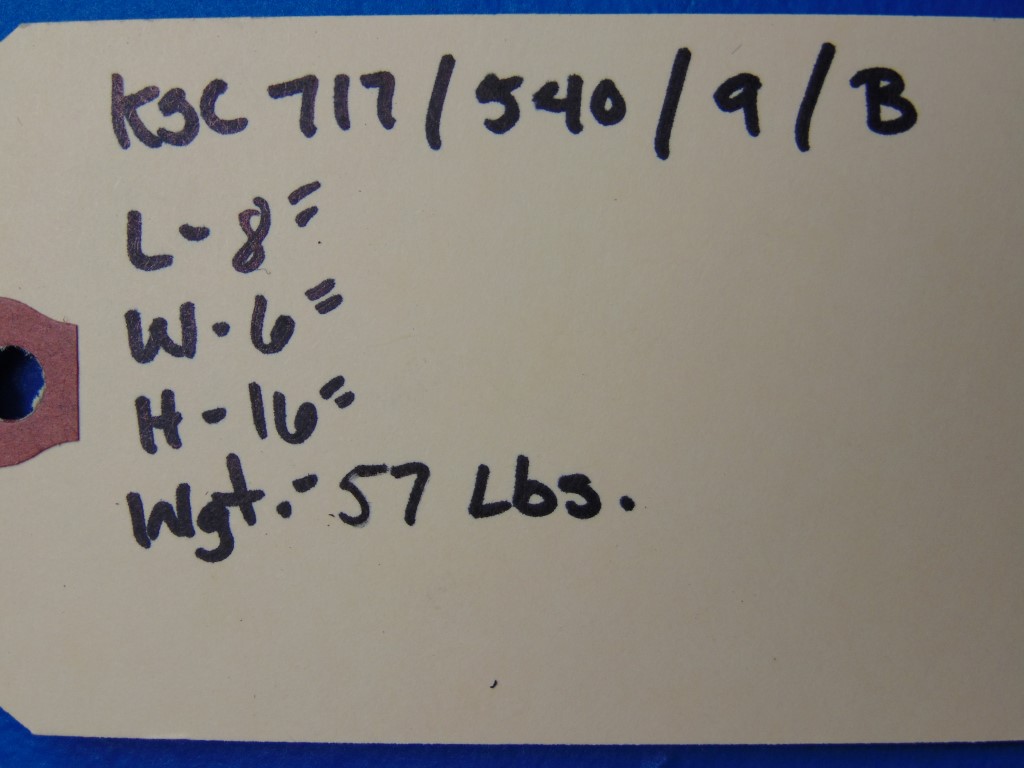 KSC 717 / 540 / 9 / B
L - 8"
W - 6"
H - 16"
Wgt. - 57 Lbs.